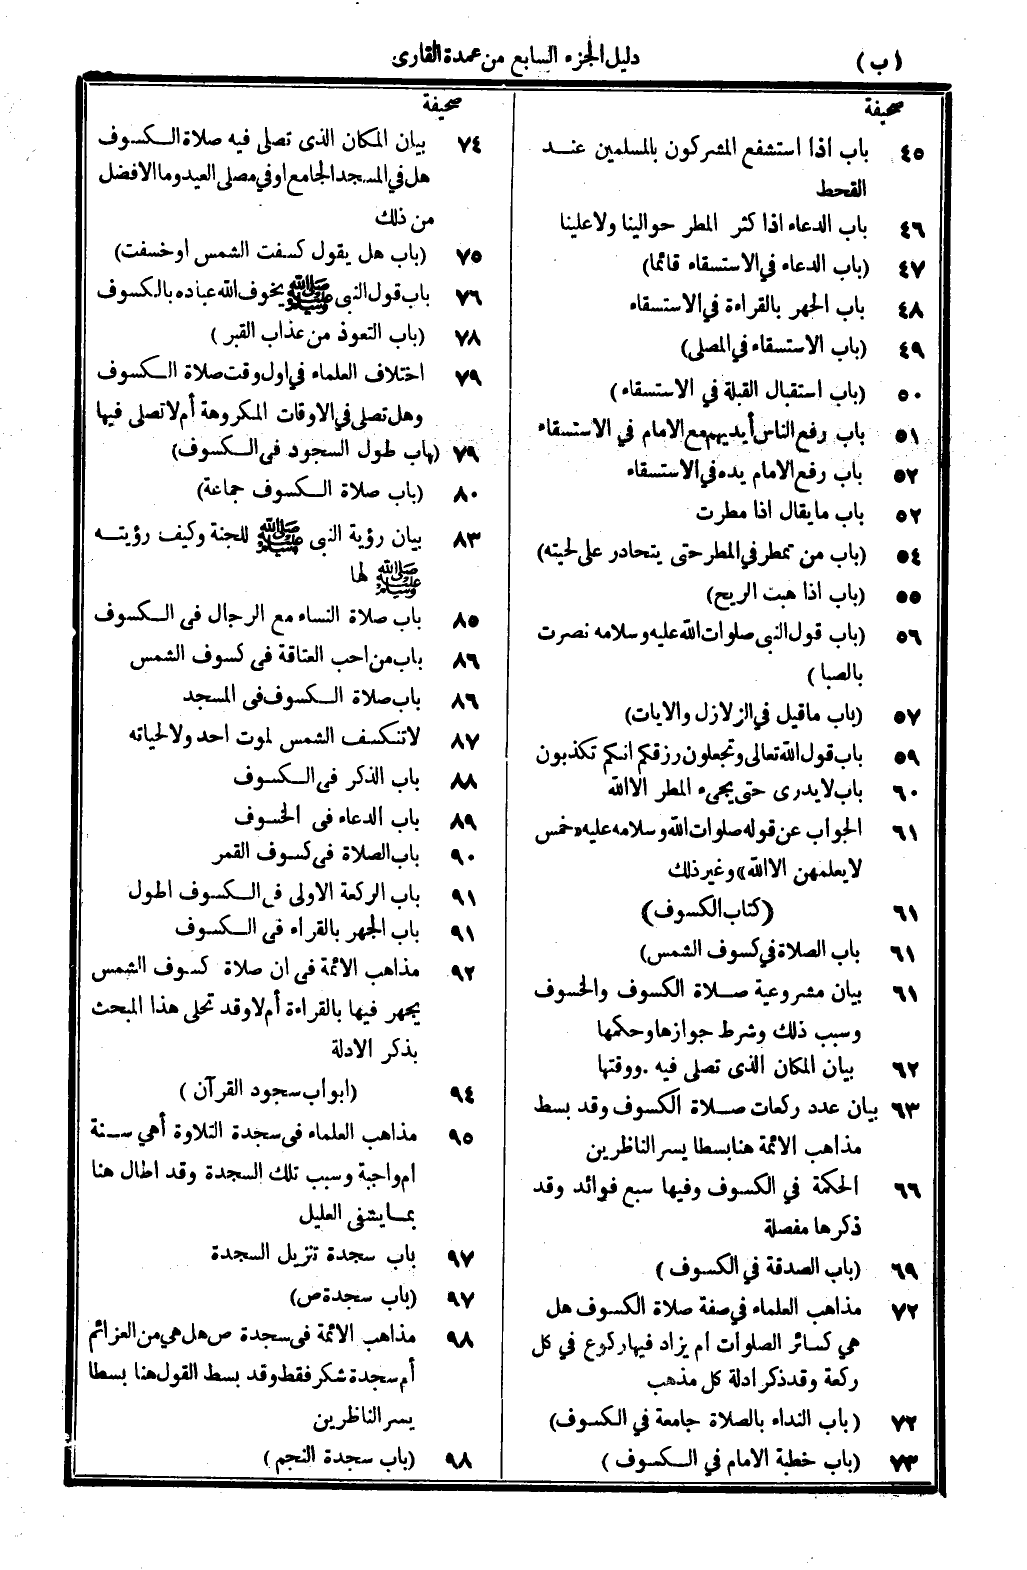 (ب)
دليل الجزء السابع من عمدة القارى
صحيفة
٤٥ باب اذا استشفع المشركون بالمسلمين عند
القحط
٤٦ باب الدعاء اذا كثر المطر حوالينا ولا علينا
٤٧ (باب الدعاء في الاستسقاء قائما)
٤٨ باب الجهر بالقراءة في الاستسقاء
٤٩ (باب الاستسقاء في المصلى)
٥٠ (باب استقبال القبلة في الاستسقاء)
٥١ باب رفع الناس أيديهم مع الامام في الاستسقاء
٥٢ باب رفع الامام يده في الاستسقاء
٥٢ باب ما يقال اذا مطرت
٥٤ (باب من تمطر في المطر حتى يتحادر على لحيته)
٥٥ (باب اذا هبت الريح)
٥٦ (باب قول النبى صلوات الله عليه وسلامه نصرت
بالصبا)
٥٧ (باب ماقيل في الزلازل والايات)
٥٩ باب قول الله تعالى وتجعلون رزقكم انكم تكذبون
٦٠ باب لا يدرى حتى يجىء المطر الا الله
٦١ الجواب عن قوله صلوات الله وسلامه عليه «خمس
لا يعلمهن الا الله» وغير ذلك
٦١ (كتاب الكسوف)
٦١ باب الصلاة في كسوف الشمس)
٦١ بيان مشروعية صلاة الكسوف والخسوف
وسبب ذلك وشرط جوازها وحكمها
٦٢ بيان المكان الذى تصلى فيه . ووقتها
٦٣ بيان عدد ركعات صلاة الكسوف وقد بسط
مذاهب الائمة هنا بسطا يسر الناظرين
٦٦ الحكمة في الكسوف وفيها سبع فوائد وقد
ذكرها مفصلة
٦٩ (باب الصدقة في الكسوف)
٧٢ مذاهب العلماء في صفة صلاة الكسوف هل
هي كسائر الصلوات ام يزاد فيها ركوع في كل
ركعة وقد ذكر ادلة كل مذهب
٧٢ (باب النداء بالصلاة جامعة في الكسوف)
٧٣ (باب خطبة الامام في الكسوف)
صحيفة
٧٤ بيان المكان الذى تصلى فيه صلاة الكسوف
هل في المسجد الجامع او في مصلى العيد وما الافضل
من ذلك
٧٥ (باب هل يقول كسفت الشمس أو خسفت)
٧٦ باب قول النبى ﷺ يخوف الله عباده بالكسوف
٧٨ (باب التعوذ من عذاب القبر)
٧٩ اختلاف العلماء في اول وقت صلاة الكسوف
وهل تصلى في الاوقات المكروهة أم لا تصلى فيها
٧٩ (باب طول السجود فى الكسوف)
٨٠ (باب صلاة الكسوف جماعة)
٨٣ بيان رؤية النبى ﷺ للجنة وكيف رؤيته
ﷺ لها
٨٥ باب صلاة النساء مع الرجال فى الكسوف
٨٦ باب من احب العتاقة فى كسوف الشمس
٨٦ باب صلاة الكسوف فى المسجد
٨٧ لا تنكسف الشمس لموت احد ولا لحياته
٨٨ باب الذكر فى الكسوف
٨٩ باب الدعاء فى الخسوف
٩٠ باب الصلاة فى كسوف القمر
٩١ باب الركعة الاولى فى الكسوف اطول
٩١ باب الجهر بالقراء فى الكسوف
٩٢ مذاهب الائمة فى ان صلاة كسوف الشمس
يجهر فيها بالقراءة أم لا وقد تحلى هذا المبحث
بذكر الادلة
٩٤ (ابواب سجود القرآن)
٩٥ مذاهب العلماء فى سجدة التلاوة أهي سنة
ام واجبة وسبب تلك السجدة وقد اطال هنا
بما يشفى العليل
٩٧ باب سجدة تنزيل السجدة
٩٧ (باب سجدة ص)
٩٨ مذاهب الائمة فى سجدة ص هل هي من العزائم
أم سجدة شكر فقط وقد بسط القول هنا بسطا
يسر الناظرين
٩٨ (باب سجدة النجم)